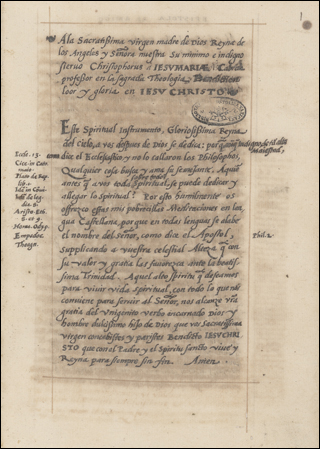 A la Sacratissima virgen madre de Dios Reyna de
los Angeles y Señora nuestra Su minimo e indigno
sieruo Christophorus a IESUMARIA
professor en la sagrada Theologia
loor y gloria en IESU CHRISTO
Este Spiritual instrumento, Gloriosissima Reyna
del cielo, a vos despues de Dios se dedica: por
dice el Ecclesiastico y no lo callaron los Philosophos,
Qualquier cosa busca y ama su semejante. A quien
antes q̃ a vos toda Spiritual, se puede dedicar y
allegar lo Spiritual? Por esto humilmente os
offrezco estas mis pobrecillas Meditaciones en len
gua Castellana, porque en todas lenguas se alabe
el nombre del Señor, como dice el Apostol,
Supplicando a vuestra celestial Alteza q̃ an
su valor y gratia las fauorezca ante la beatis
sima Trinidad. Aquel alto spiritu q̃ desseamos
para viuir vida spiritual, con todo lo que nos
conuiene para seruir al Señor, nos alcanze vr̃a
gratia del Vnigenito verbo encarnado dios y
hombre dulcissimo hijo de Dios que vos Sacratissima
virgen concebistes y paristes Benedicto IESUCHRI
STO que con el Padre y el Spiritu sancto viue y
Reyna para siempre sin fin. Amen.
Eccle. 13.
Cice. in Cato
Plato de
lib.
Aristo. Eth.
Homo. Odys.
Empedoc.
Theogn.
Phil. 2.